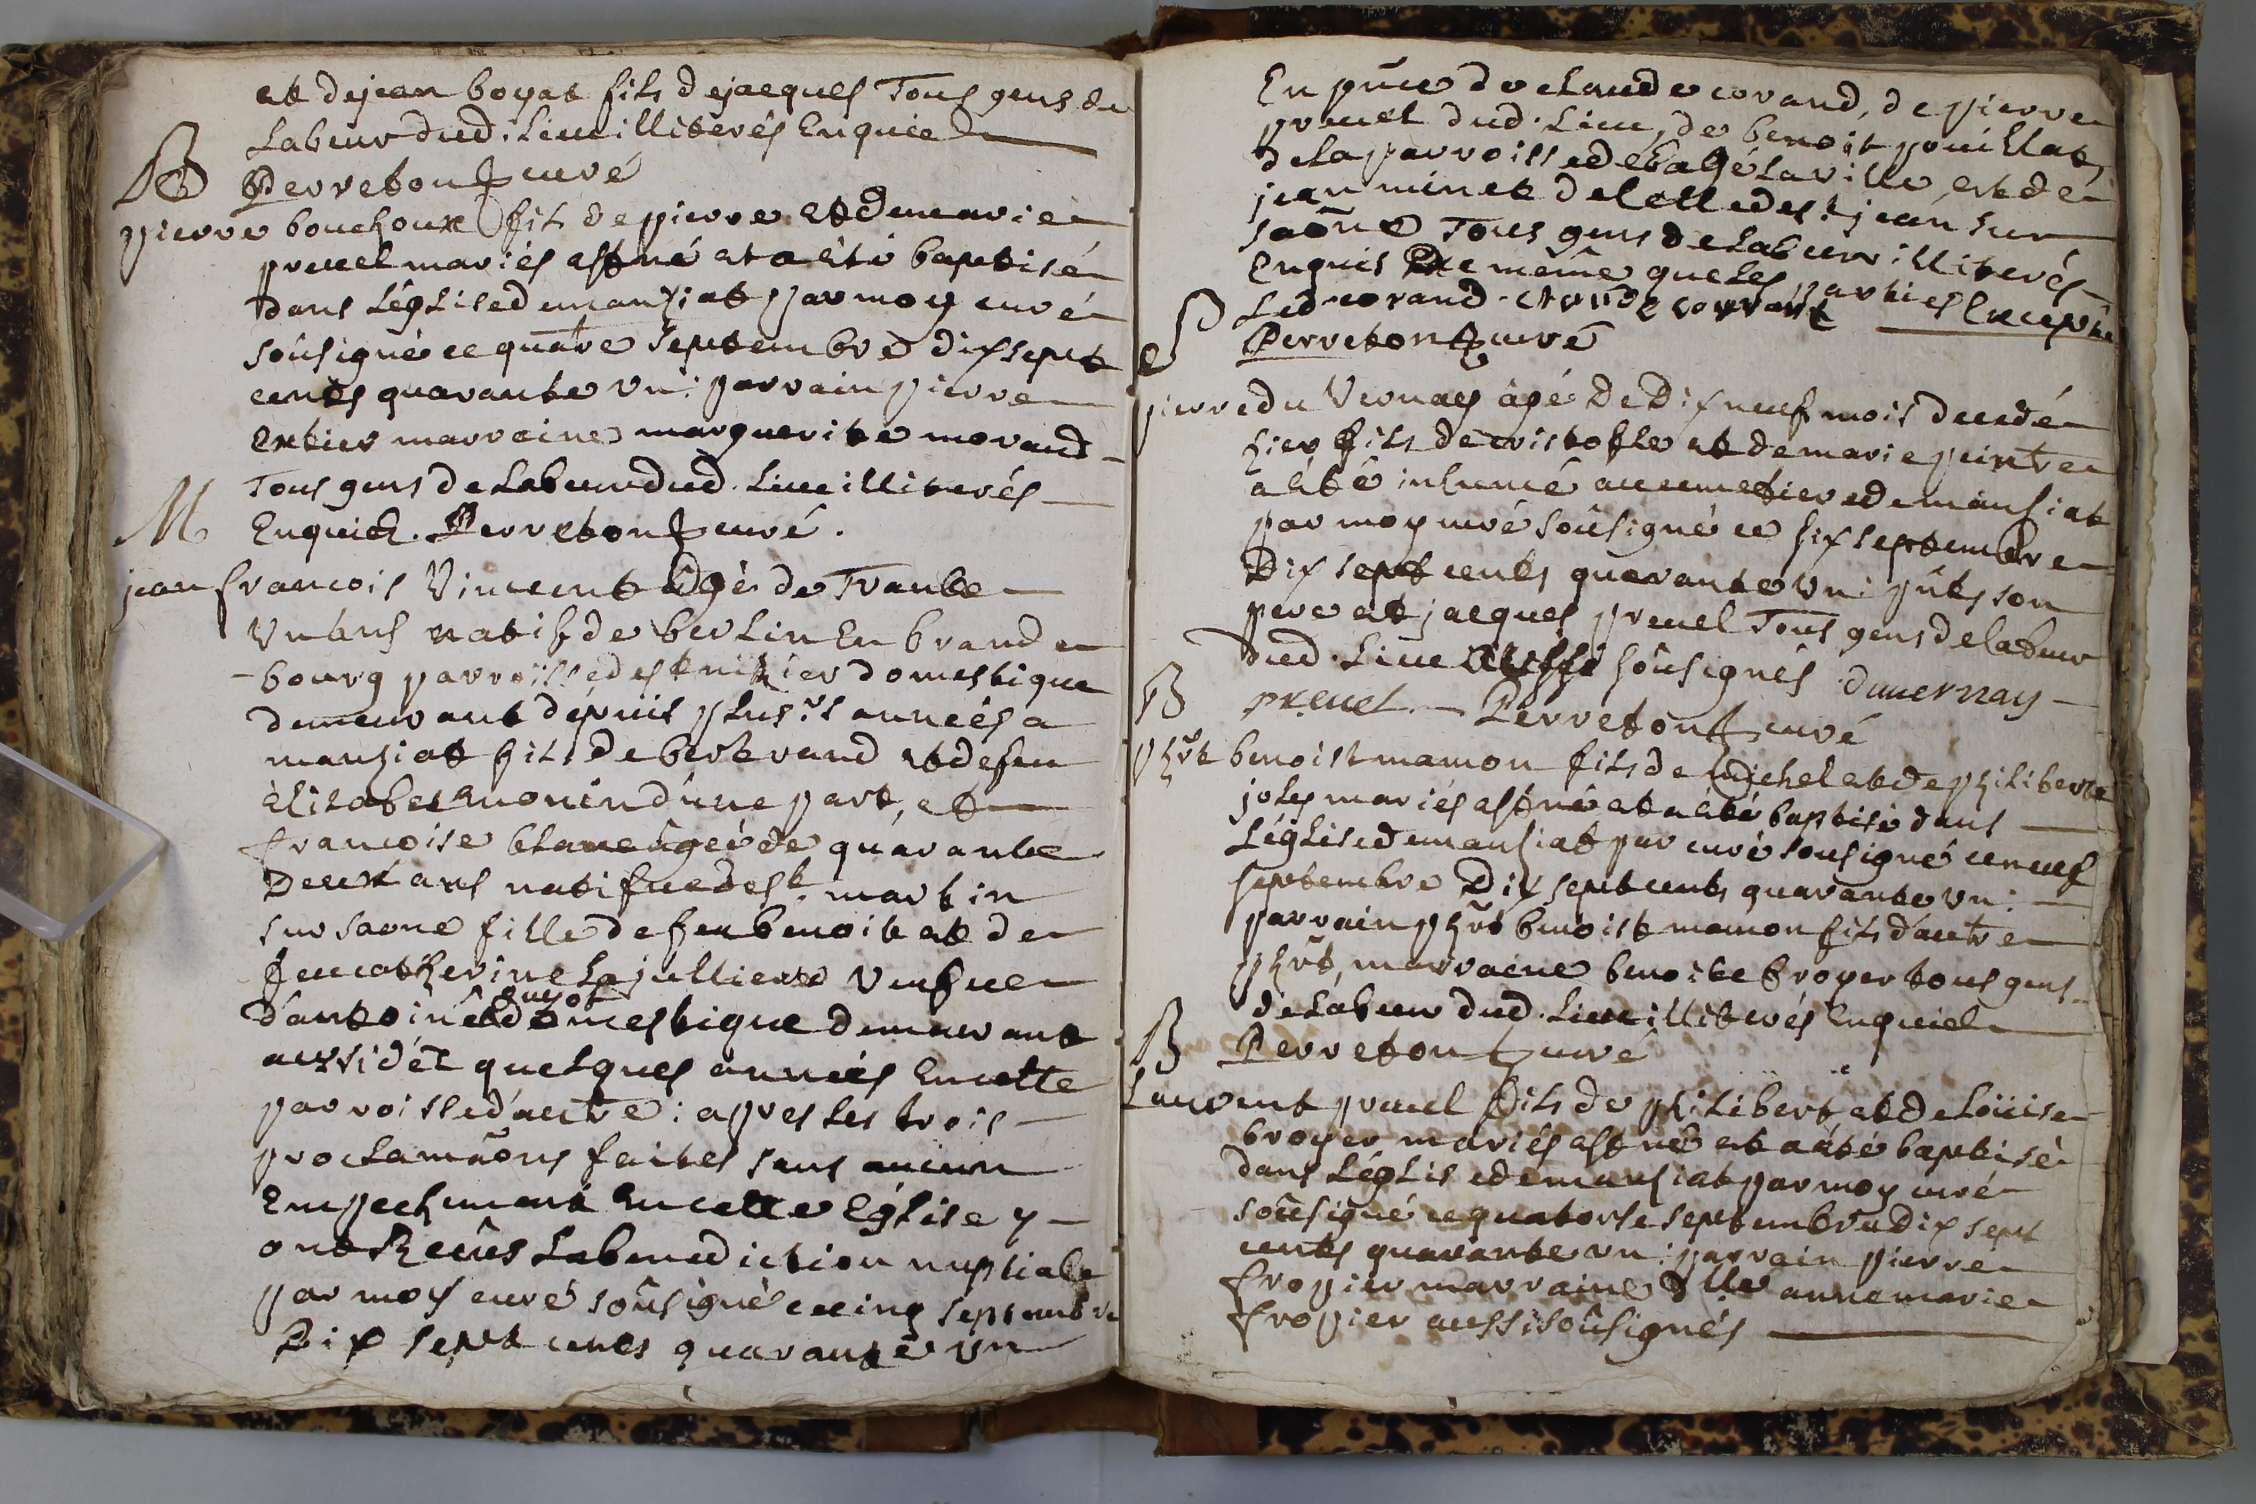 et de jean boyat fils de jacques Tous gens de
Labeur dud. Lieu illiterés Enquis
B Perreton curé
pierre bouchoux fils de pierre et de marie
preuel mariés est né et a été baptisé
dans L'église de manziat par moy curé
soûsigné ce quatre septembre dix sept
cents quarante vn : parrain pierre
marraine marguerite morand
Tous gens de Labeur dud. Lieu illiterés
M Enquis. Perreton curé.
jean francois Vincent âgé de Trante
Vn ans natif de berlin En brande
-bourg parroisse de st domestique
demeurant depuis plusrs années a
manziat fils de bertrand et de feu
Elisabet monin d'une part, et
francoise blanc âgée de quarante
Deux ans natifue de st. martin
sur saone fille de feu benoit et de
feue catherine La jullien Veufue
d'antoine guyot domestique demeurant
quelques années En cette
parroisse d'autre : apres Les trois
proclamãons faites sans aucun
Empechement En cette Eglise y
ont Receûs La benediction nuptiale
par moy curé soûsigné ce cinq septembre
Dix sept cents quarante vn
En pñce de claude corand, de pierre
preuel dud. Lieu, de benoit pouillat,
de La parroisse de bagé La ville, et de
jean minet de celle de st jean sur
saône Tous gens de Labeur illiterés
Enquis De même que Les parties Excepté
Led. corand
S Perreton curé
pierre du Vernay âgé De Dix neuf mois decedé
hier fils de cristofle et de marie peintre
a été inhumé au cemetiere de manziat
par moy curé soûsigné ce six septembre
Dix sept cents quarante vn : pñts son
pere et jacques preuel Tous gens de labeur
dud. Lieu soûsignés. duuernay
B preuel Perreton curé
phirt benoist mamon fils de michel et de philiberte
joly mariés est né et a été baptisé dans
L'église de manziat par curé soûsigné ce neuf
septembre Dix sept cents quarante vn :
parrain phirt benoist mamon fils d'autre
phirt, marraine benoite broyer tous gens
de Labeur dud. Lieu illiterés Enquis
B Perreton curé
Laurent preuel fils de philibert et de Loüise
broyer mariés est né et a été baptisé
dans L'église de manziat par moy curé
soûsigné ce quatorse septembre Dix sept
cents quarante vn : parrain pierre
fropier marraine dlle anne marie
fropier aussi soûsignés